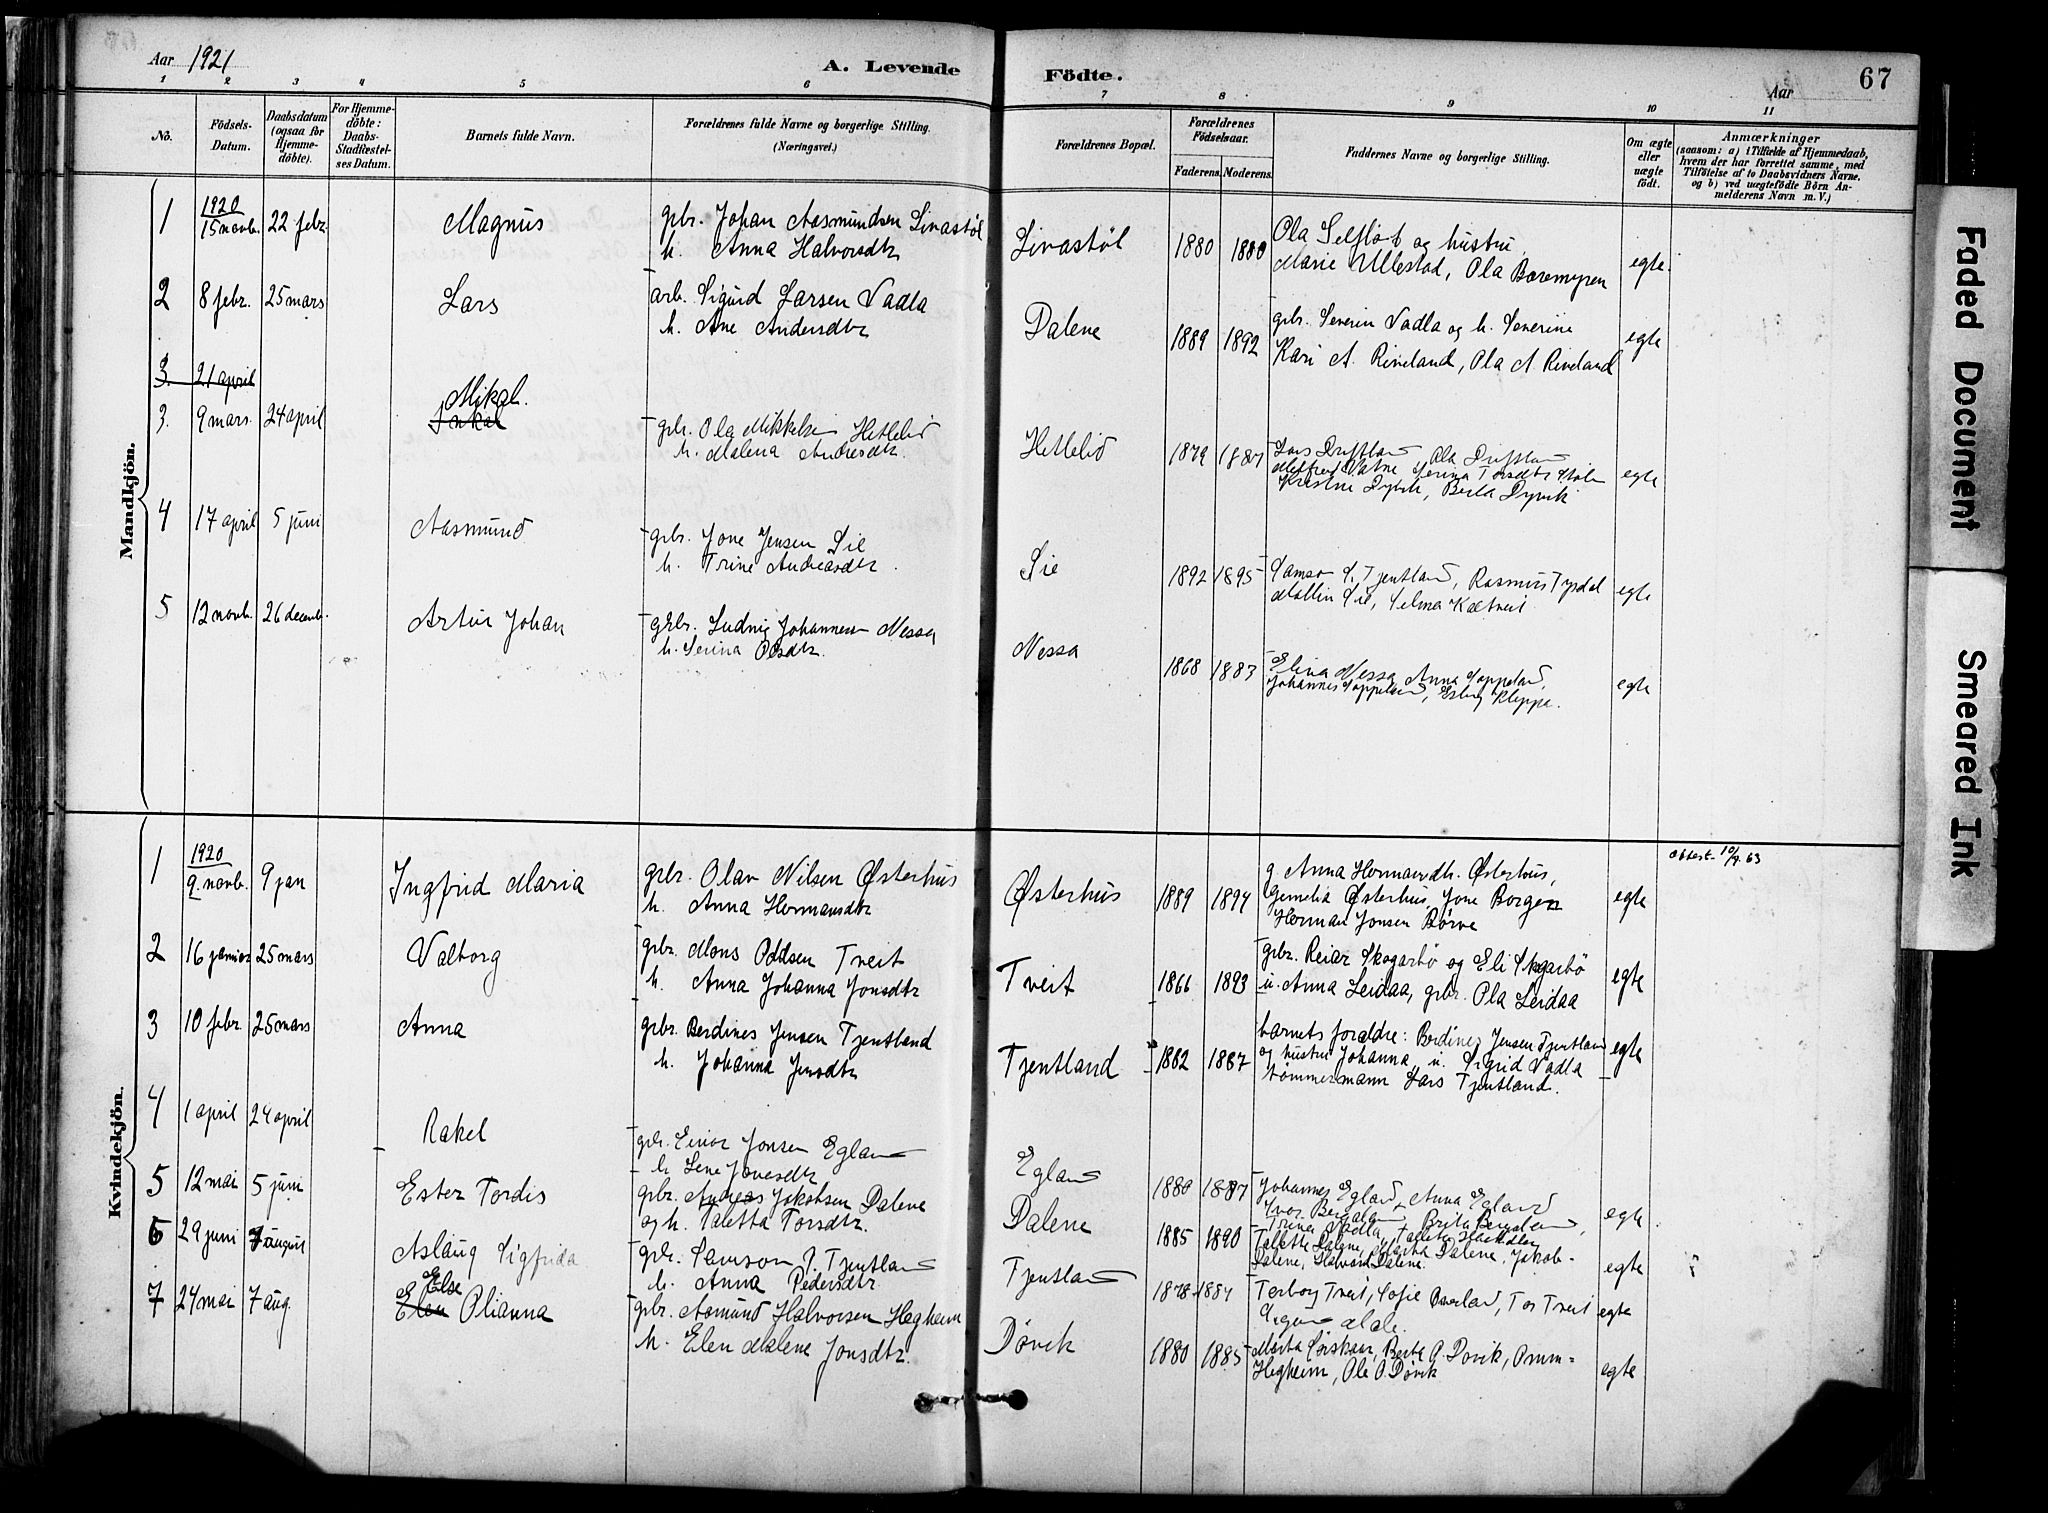 Aar 1921
A. Levende Födte.
67
Aar
1 2 3 4 5 6 7 8 9 10 11
No.
Födsels-Datum.
Daabsdatum (ogsaa for Hjemmedöbte).
For Hjemmedöbte: Daabs-Stadfæstelses Datum.
Barnets fulde Navn.
Forældrenes fulde Navne og borgerlige Stilling. (Næringsvei.)
Forældrenes Bopæl.
Forældrenes Födselsaar.
Faderens. Moderens.
Faddernes Navne og borgerlige Stilling.
Om ægte eller uægte födt.
Anmærkninger
(saasom: a) i Tilfælde af Hjemmedaab, hvem der har forrettet samme, med Tilföielse af to Daabsvidners Navne, og b) ved uægtefödte Börn Anmelderens Navn m. V.)
Mandkjön.
1 1920 15 novb. 22 febr. Magnus
gbr. Johan Aasmundsen Livastøl
h. Anna Halvorsdtr
Livastöl 1880 1880
Ola Selflöt og hustru,
Marie Ullestad, Ola Baremyren
egte.
2 8 febr. 25 mars Lars
arb. Sigurd Larsen Vadla
h. Ane Andersdtr
Dalene 1889 1892
gbr. Severin Vadla og h. Severine
Kari A. Riveland, Ola A Riveland
egte
3. 21 april
3. 9 mars. 24 april Mikal.
gbr. Ola Mikkelsen Hetlelid
h. Malena Andersdtr.
Hetlelid 1879 1887
Lars Ola
Berta Dyrvik
egte
4 17 april 5 juni Aasmund
gbr. Jone Jensen Sie
h. Trine Andreasdtr.
Sie 1892 1895
Samson S. Tjentland, Rasmus Tysdal
Mallin Sie, Selma
egte
5 12 novb. 26 decemb. Artur Johan
gbr. Ludvig Johannesen Nessa
h. Serina Olsdtr.
Nessa 1868 1883
Elina Nessa, Anna
Johannes Kleppa.
egte
Kvindekjön.
1 1920 9. novb. 9 jan Ingfrid Maria
gbr. Olav Nilsen Østerhus
h. Anna Hermansdtr
Østerhus 1889 1894
g. Anna Hermansdtr. Østerhus,
Gemelia Østerhus, Jone Borgen
Herman Jonsen Börve
egte
Attest. 10/9. 63
2 16 januar 25 mars Valborg
gbr. Mons Oddsen Tveit
h. Anna Johanna Jonsdtr
Tveit 1866 1893
gbr. Reiar Skogarbö og Eli Skogarbö
u. Anna Leidaa, gbr. Ola Leidaa
egte
3 10 febr. 25 mars Anna
gbr. Berdines Jensen Tjentland
h. Johanna Jensdtr
Tjentland 1882 1887
barnets foraldre: Berdines Jensen Tjentland
og hustru Johanna, u. Sigrid Vadla
tömmermann Lars Tjentland.
egte
4 1 april 24 april Rakel
gbr. Einar Jonsen Egland
h. Lene Jonesdtr
Egland 1880 1887
Johannes Egland, Anna Egland
egte
5 12 mai 5 juni Ester Tordis
gbr. Andreas Jakobsen Dalene
og h. Taletta Torsdtr.
Dalene 1885 1890
Dalene, Halvard Dalene.
egte
6 29 juni 7 august Aslaug Sigfrida
gbr. Samson P. Tjentland
h. Anna Pedersdtr.
Tjentland 1878 1884
Torborg Tveit, Sofie Tor Tveit
egte
7 24 mai 7 aug. Else Elen Olianna
gbr. Aamund Halvorsen Hegheim
h. Elen Malene Jonsdtr.
Dövik 1880 1885
Marta Berta O. Dovik,
Hegheim, Ole O. Dövik
egte
Faded Document
Smeared Ink